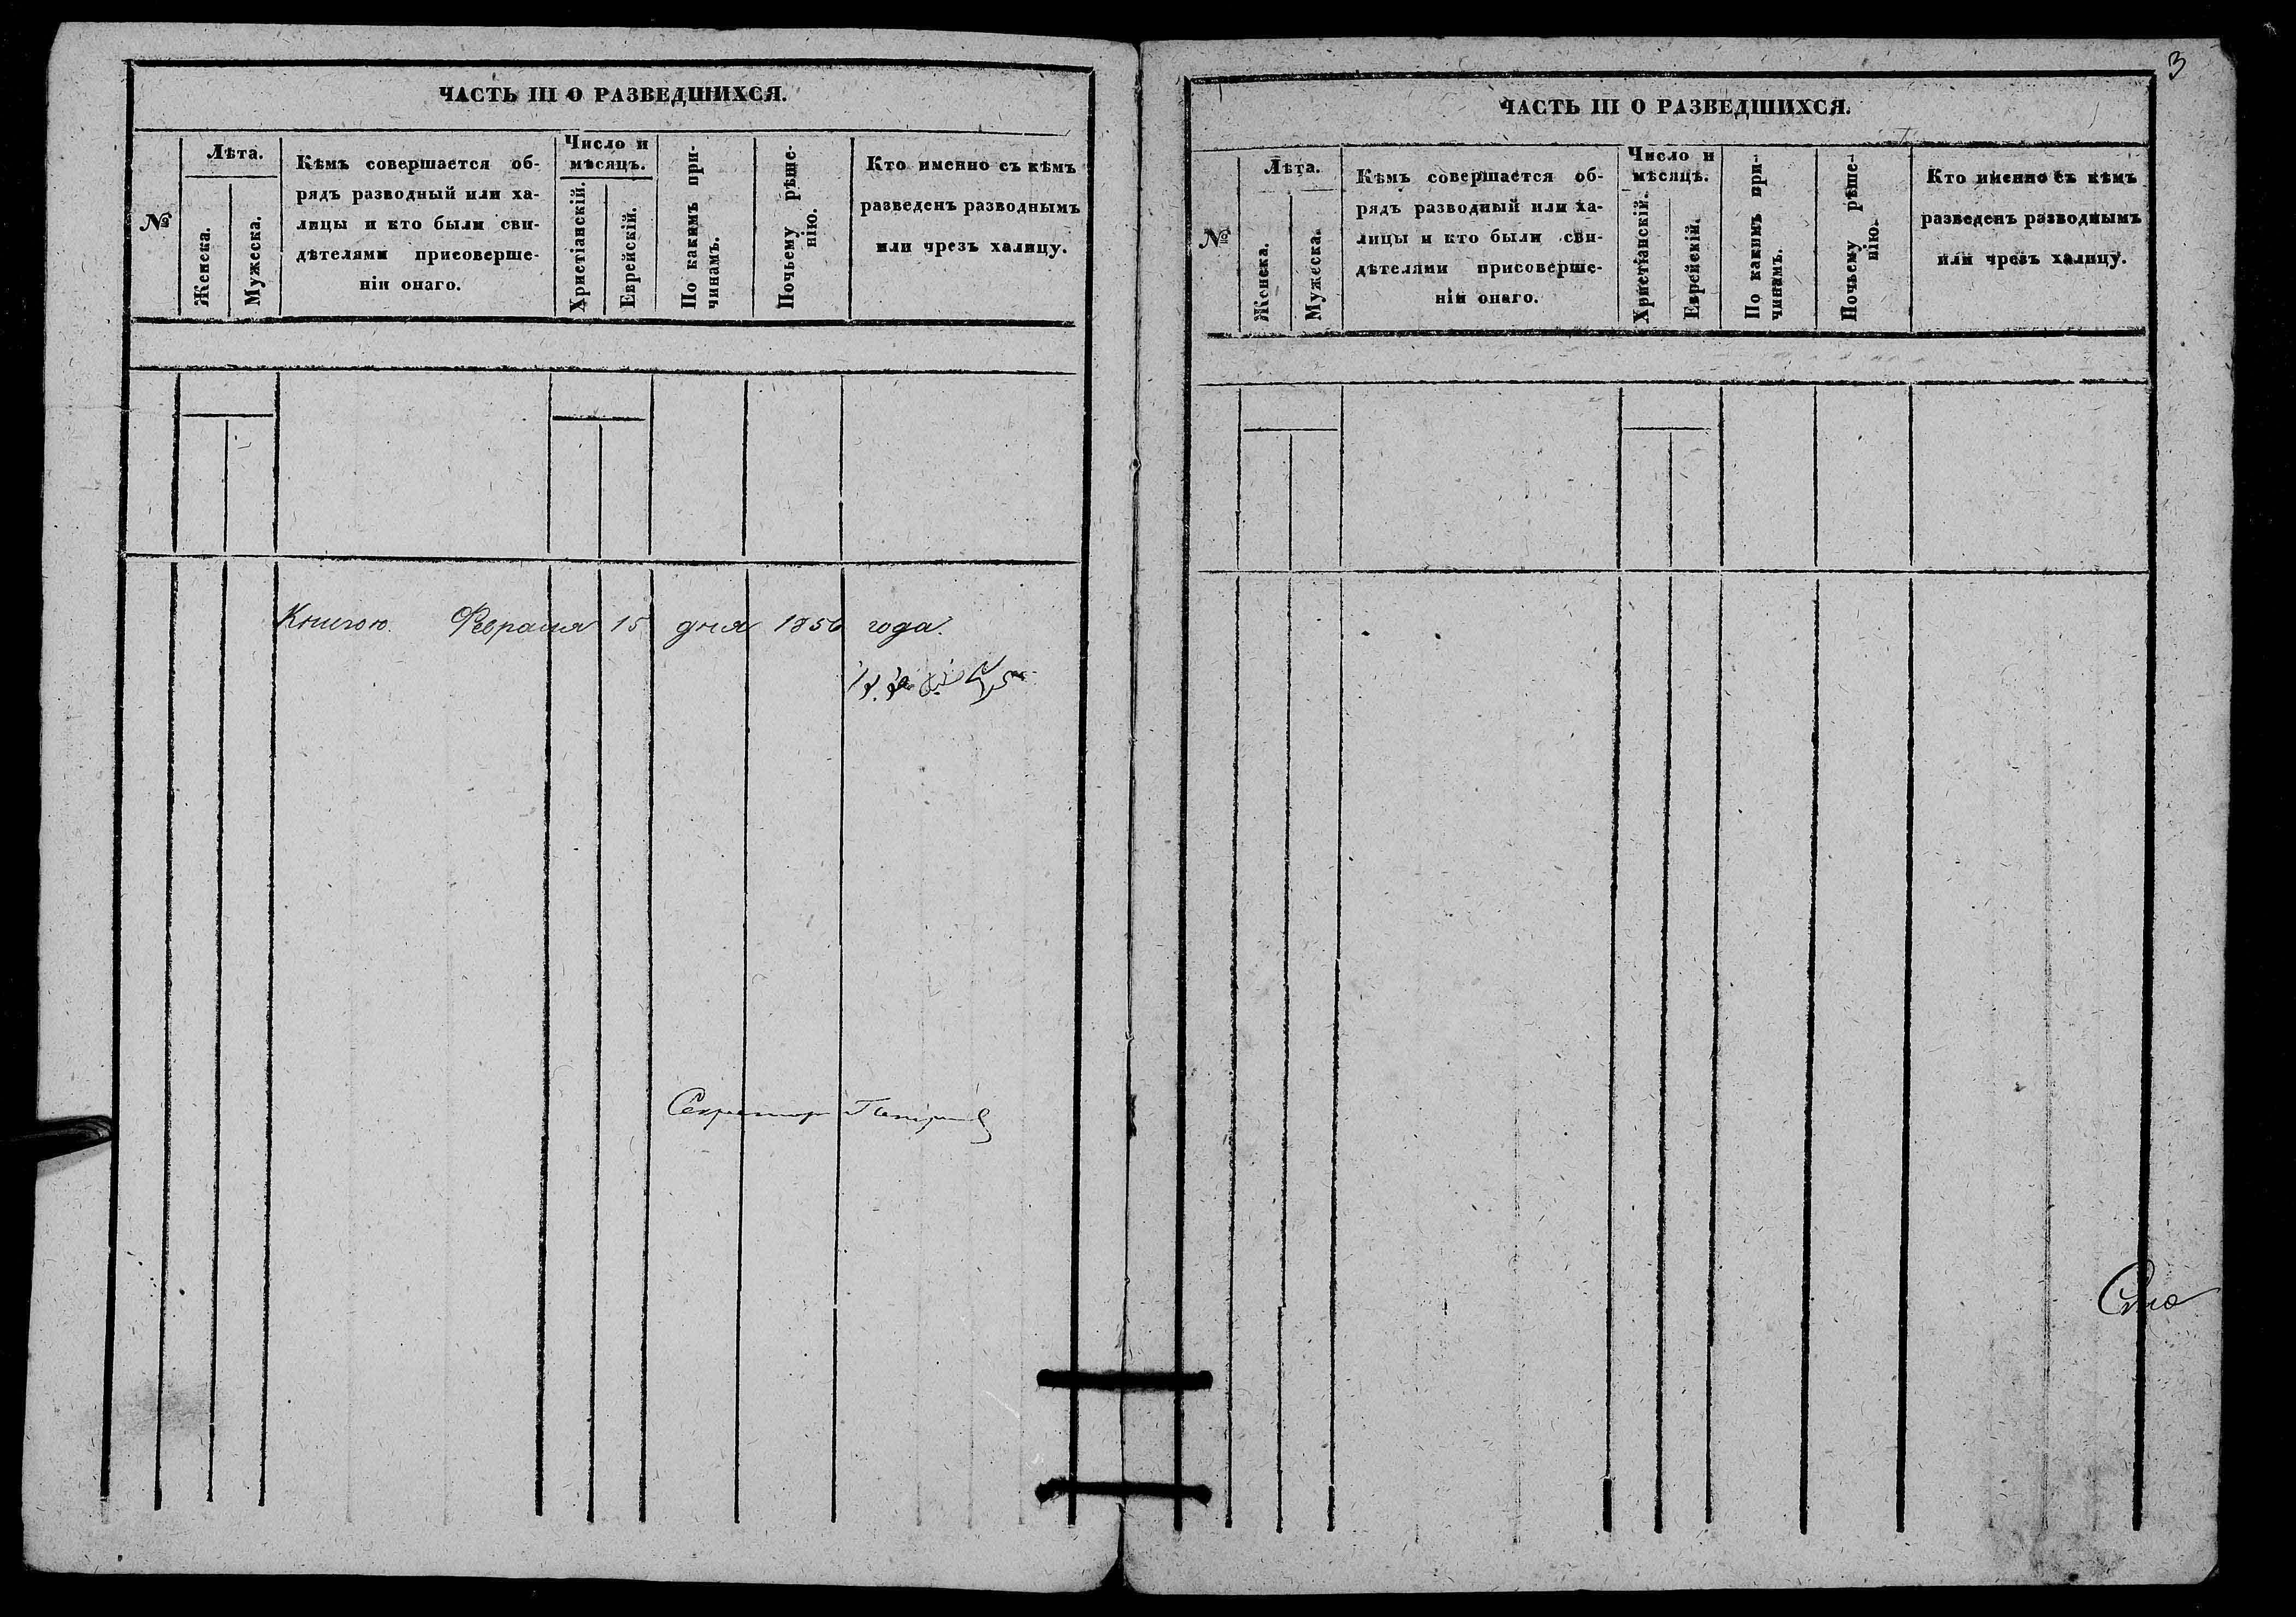 ЧАСТЬ III О РАЗВЕДШИХСЯ.
№
Лѣта.
Женска.
Мужеска.
Кѣмъ совершается об-
рядъ разводный или ха-
лицы и кто были сви-
дѣтелями присоверше-
ніи онаго.
Число и
мѣсяцъ.
Христіанскій.
Еврейскій.
По какимъ при-
чинамъ.
Почьему рѣше-
нію.
Кто именно съ кѣмъ
разведенъ разводнымъ
или чрезъ халицу.
Книгою. Февраля 15 дня 1856 года.
Секретарь
3
ЧАСТЬ III О РАЗВЕДШИХСЯ.
№
Лѣта.
Женска.
Мужеска.
Кѣмъ совершается об-
рядъ разводный или ха-
лицы и кто были сви-
дѣтелями присоверше-
ніи онаго.
Число и
мѣсяцъ.
Христіанскій.
Еврейскій.
По какимъ при-
чинамъ.
Почьему рѣше-
нію.
Кто именно съ кѣмъ
разведенъ разводнымъ
или чрезъ халицу.